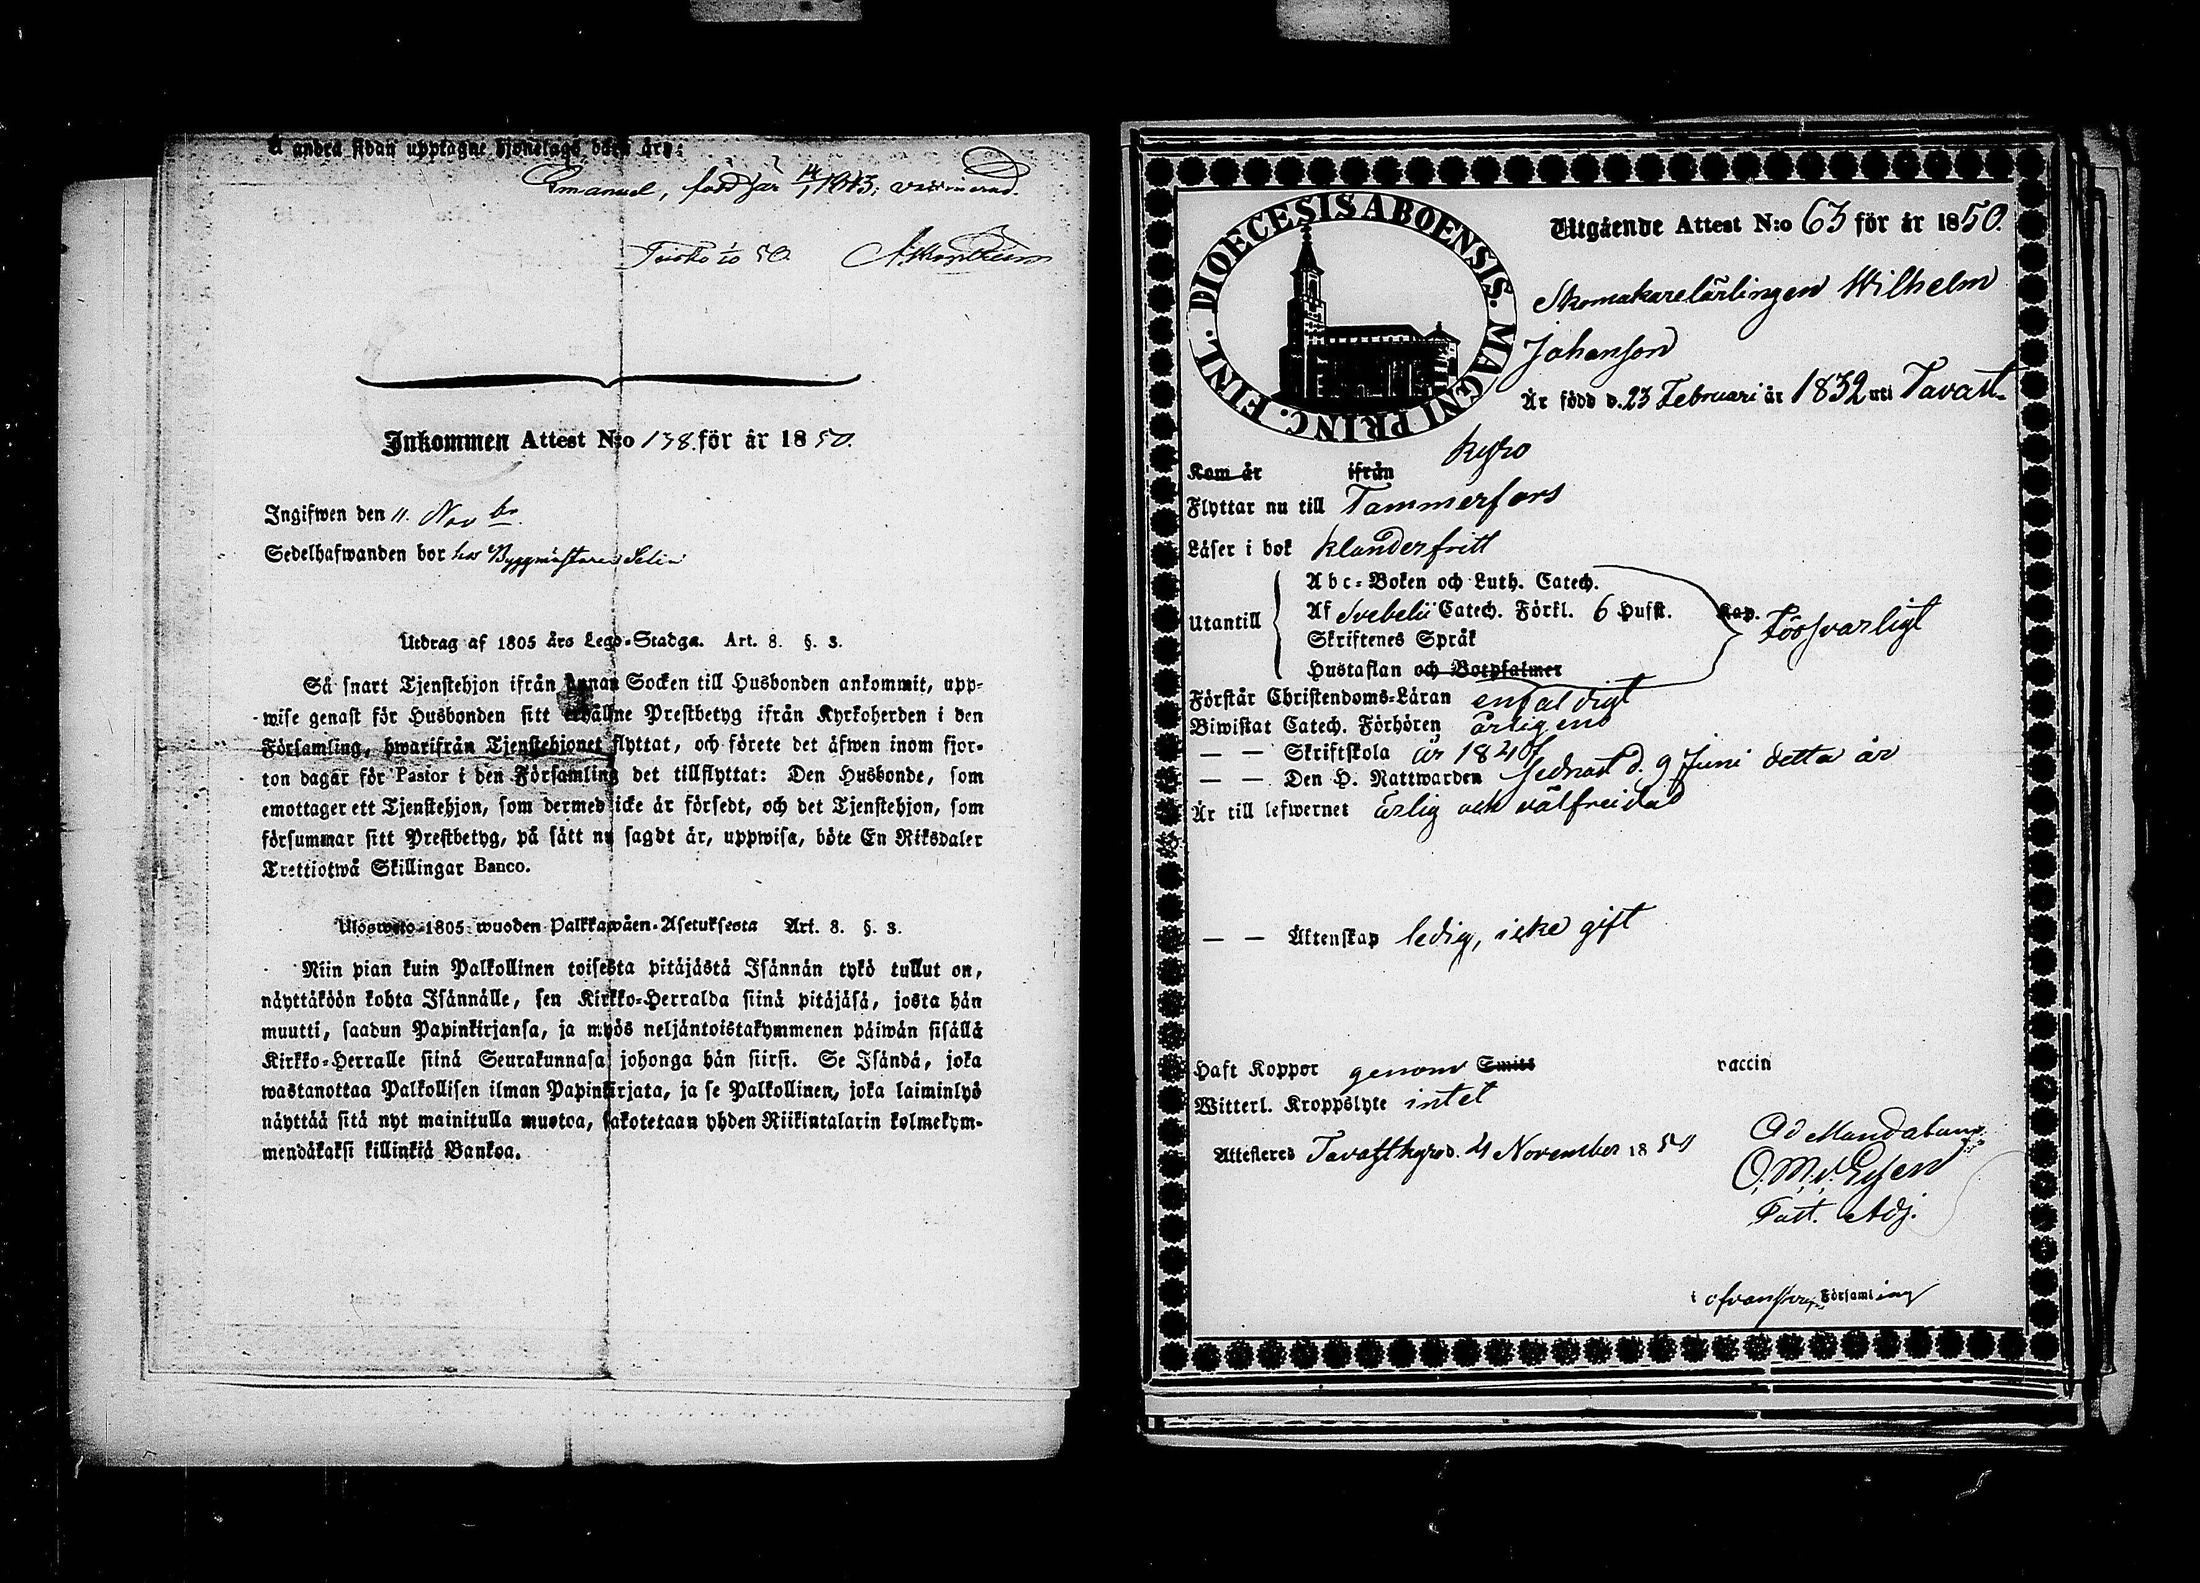 å andra sidan upptagne hjonelags barn äro:
Emanuel, född här 14/1 1843; vaccinerad.
50.
Inkommen Attest N:o 138. för år 1850.
Ingifwen den 11. Novbr
Sedelhafwanden bor hos Byggmästaren Selin
Utdrag af 1805 års Lego-Stadga. Art. 8. §. 3.
Så snart Tjenstehjon ifrån annan Socken till Husbonden ankommit, upp-
wise genast för Husbonden sitt erhållne Prestbetyg ifrån Kyrkoherden i den
Församling, hwarifrån Tjenstehjonet flyttat, och förete det äfwen inom fjor-
ton dagar för Pastor i den Församling det tillflyttat: Den Husbonde, som
emottager ett Tjenstehjon, som dermed icke är försedt, och det Tjenstehjon, som
försummar sitt Prestbetyg, på sätt nu sagdt är, uppwisa, böte En Riksdaler
Trettiotwå Skillingar Banco.
Ulosweto 1805 wuoden Palkkawäen-Asetuksesta Art. 8. §. 3.
Niin pian kuin Palkollinen toisesta pitäjästä Isännän tykö tullut on,
näyttäköön kohta Isännälle, sen Kirkko-Herralda siinä pitäjäsä, josta hän
muutti, saadun Papinkirjansa, ja myös neljäntoistakymmenen päiwän sisällä
Kirkko-Herralle siinä Seurakunnasa johonga hän siirsi. Se Isändä, joka
wastanottaa Palkollisen ilman Papinkirjata, ja se Palkollinen, joka laiminlyö
näyttää sitä nyt mainitulla muotoa, sakotetaan yhden Riikintalarin kolmekym-
mendäkaksi killinkiä Bankoa.
DIOECESIS ABOENSIS. MAGNI PRINC. FINL.
Utgående Attest N:o 63 för år 1850.
Skomakarelärlingen Wilhelm
Johansson
Är född d. 23 Februari år 1832 uti Tavast-
kyro
Kom år ifrån
Flyttar nu till Tammerfors
Läser i bok klanderfritt
Utantill
Abc-Boken och Luth. Catech.
Af Svebelii Catech. Förkl. 6 Hufst. Kap. Försvarligt
Skriftenes Språk
Hustaflan och Botpsalmer
Förstår Christendoms-Läran enfaldigt
Biwistat Catech. Förhören årligens
— — Skriftskola år 1847
— — Den H. Nattwarden sednast d. 9 Juni detta år
Är till lefwernet ärlig och välfreidad
— — Äktenskap ledig, icke gift
Haft Koppor genom Smitt vaccin
Witterl. Kroppslyte intet
Attesteres Tavastkyro d. 4 November 1850
Ad Mandatum
Past. Adj.
i ofvanskr. Församling